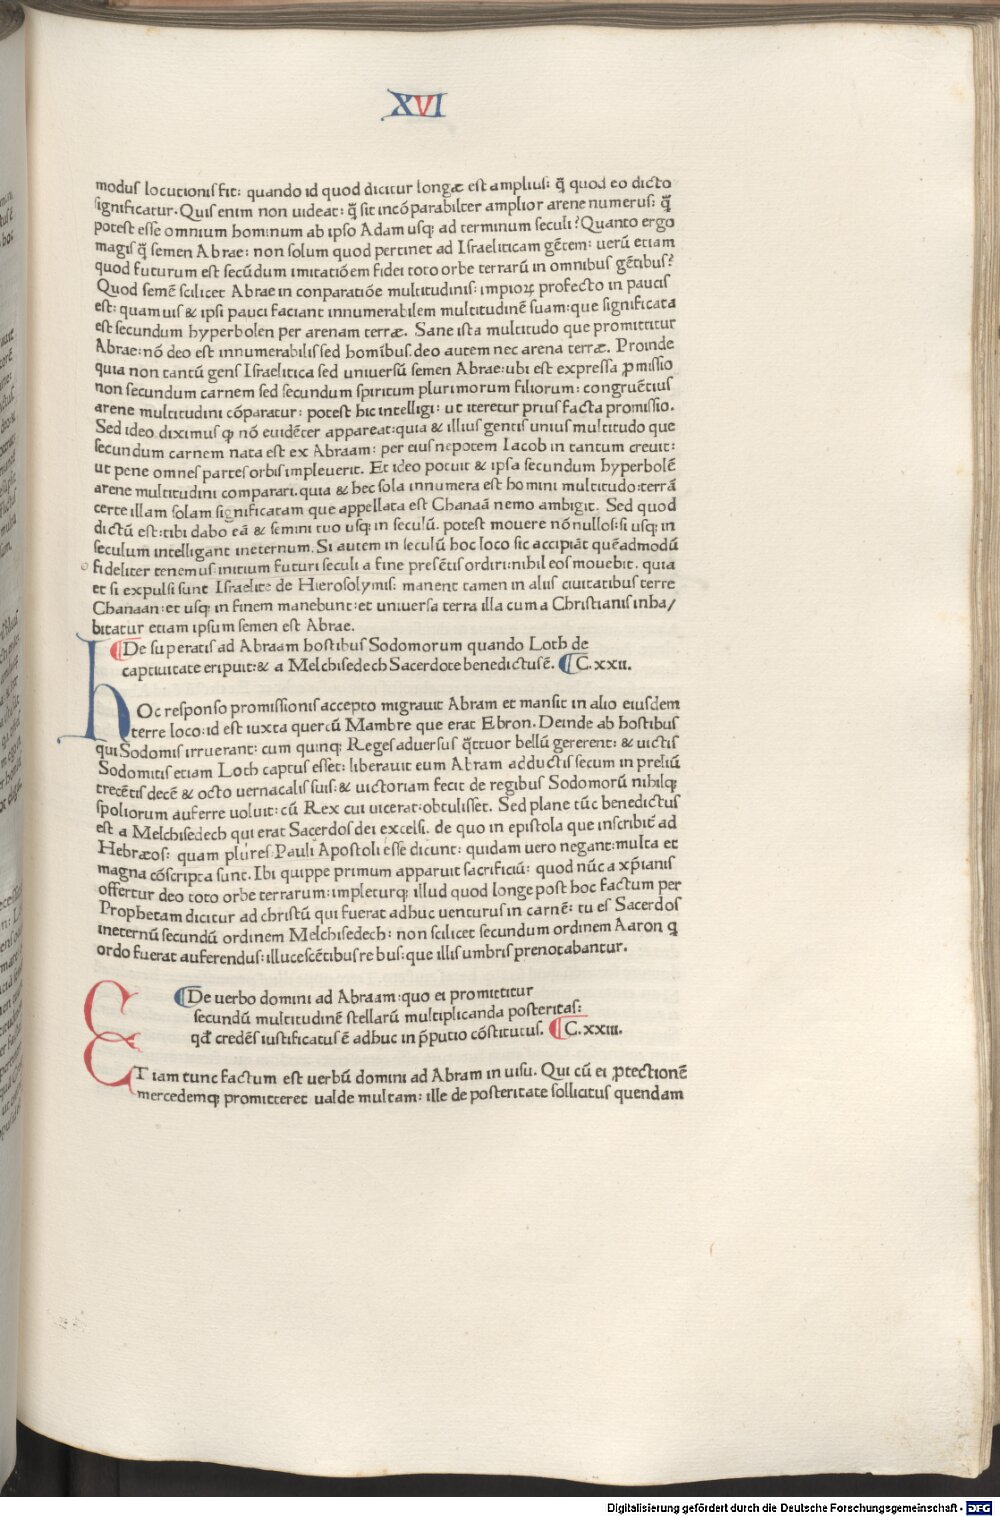 XVI
modus locutionis fit: quando id quod dicitur longæ est amplius: q̃ quod eo dicto
significatur. Quis enim non uideat: q̃ sit incóparabiliter amplior arene numerus: q̃
potest esse omnium hominum ab ipso Adam usq; ad terminum seculi? Quanto ergo
magis q̃ semen Abrae: non solum quod pertinet ad Israeliticam gẽtem: uerũ etiam
quod futurum est secũdum imitatiõem fidei toto orbe terrarũ in omnibus gẽtibus?
Quod semẽ scilicet Abrae in conparatiõe multitudinis: impioꝝ profecto in paucis
est: quamuis & ipsi pauci faciant innumerabilem multitudinẽ suam: que significata
est secundum hyperbolen per arenam terræ. Sane ista multitudo que promittitur
Abrae: nõ deo est innumerabilis sed homĩbus. deo autem nec arena terræ. Proinde
quia non tantũ gens Israelitica sed uniuersũ semen Abrae: ubi est expressa ꝓmissio
non secundum carnem sed secundum spiritum plurimorum filiorum: congruẽtius
arene multitudini cõparatur: potest hic intelligi: ut iteretur prius facta promissio.
Sed ideo diximus ꝙ nõ euidẽter appareat: quia & illius gentis unius multitudo que
secundum carnem nata est ex Abraam: per eius nepotem Iacob in tantum creuit:
ut pene omnes partes orbis impleuerit. Et ideo potuit & ipsa secundum hyperbolẽ
arene multitudini comparari. quia & hec sola innumera est homini multitudo: terrã
certe illam solam significatam que appellata est Chanaã nemo ambigit. Sed quod
dictũ est: tibi dabo eã & semini tuo usq; in seculũ. potest mouere nõ nullos: si usq; in
seculum intelligant ineternum. Si autem in seculũ hoc loco sic accipiãt quẽadmodũ
fideliter tenemus: initium futuri seculi a fine presẽtis ordiri: nihil eos mouebit. quia
et si expulsi sunt Israelite de Hierosolymis: manent tamen in aliis ciuitatibus terre
Chanaan: et usq; in finem manebunt: et uniuersa terra illa cum a Christianis inha/
bitatur etiam ipsum semen est Abrae.
¶De superatis ad Abraam hostibus Sodomorum quando Loth de
captiuitate eripuit: & a Melchisedech Sacerdote benedictus ẽ. ¶C. xxii.
hOc responso promissionis accepto migrauit Abram et mansit in alio eiusdem
terre loco: id est iuxta quercũ Mambre que erat Ebron. Deinde ab hostibus
qui Sodomis irruerant: cum quinq; Reges aduersus q̃ttuor bellũ gererent: & uictis
Sodomitis etiam Loth captus esset: liberauit eum Abram adductis secum in preliũ
trecẽtis decẽ & octo uernacalis suis: & uictoriam fecit de regibus Sodomorũ nihilq;
spoliorum auferre uoluit: cũ Rex cui uicerat: obtulisset. Sed plane tũc benedictus
est a Melchisedech qui erat Sacerdos dei excelsi. de quo in epistola que inscribit̃ ad
Hebræos: quam plures Pauli Apostoli esse dicunt: quidam uero negant: multa et
magna cõscripta sunt. Ibi quippe primum apparuit sacrificiũ: quod nũc a xp̃ianis
offertur deo toto orbe terrarum: impleturq; illud quod longe post hoc factum per
Prophetam dicitur ad christũ qui fuerat adhuc uenturus in carnẽ: tu es Sacerdos
ineternũ secundũ ordinem Melchisedech: non scilicet secundum ordinem Aaron q̃
ordo fuerat auferendus: illucescẽtibus rebus: que illis umbris prenotabantur.
¶De uerbo domini ad Abraam: quo ei promittitur
secundũ multitudinẽ stellarũ multiplicanda posteritas:
qđ credẽs iustificatus ẽ adhuc in p̃putio cõstitutus. ¶C. xxiii.
ET iam tunc factum est uerbũ domini ad Abram in uisu. Qui cũ ei ꝓtectionẽ
mercedemq; promitteret ualde multam: ille de posteritate sollicitus quendam
Digitalisierung gefördert durch die Deutsche Forschungsgemeinschaft - DFG